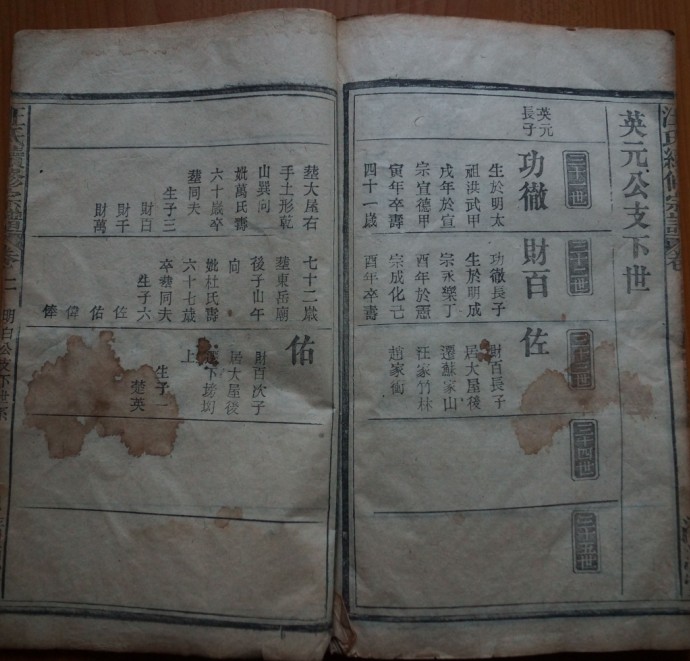 汪氏續修宗譜
英元公支下世
三十一世
英元
長子
功徹
生於明太
祖洪武甲
戌年於宣
宗宣德甲
寅年卒壽
四十一歲
葬大屋右
手土形乾
山巽向
妣萬氏壽
六十歲卒
葬同夫
生子三
財百
財千
財萬
三十二世
財百
功徹長子
生於明成
宗永樂丁
酉年於憲
宗成化己
酉年卒壽
七十二歲
葬東岳廟
後子山午
向
妣杜氏壽
六十七歲
卒葬同夫
生子六
佐
佑
偉
俸
三十三世
佐
財百長子
居大屋後
遷蘇家山
汪家竹林
趙家衝
佑
財百次子
居大屋後
下塝
上
生子一
楚英
三十四世
三十五世
汪氏續修宗譜
明白公支下世系